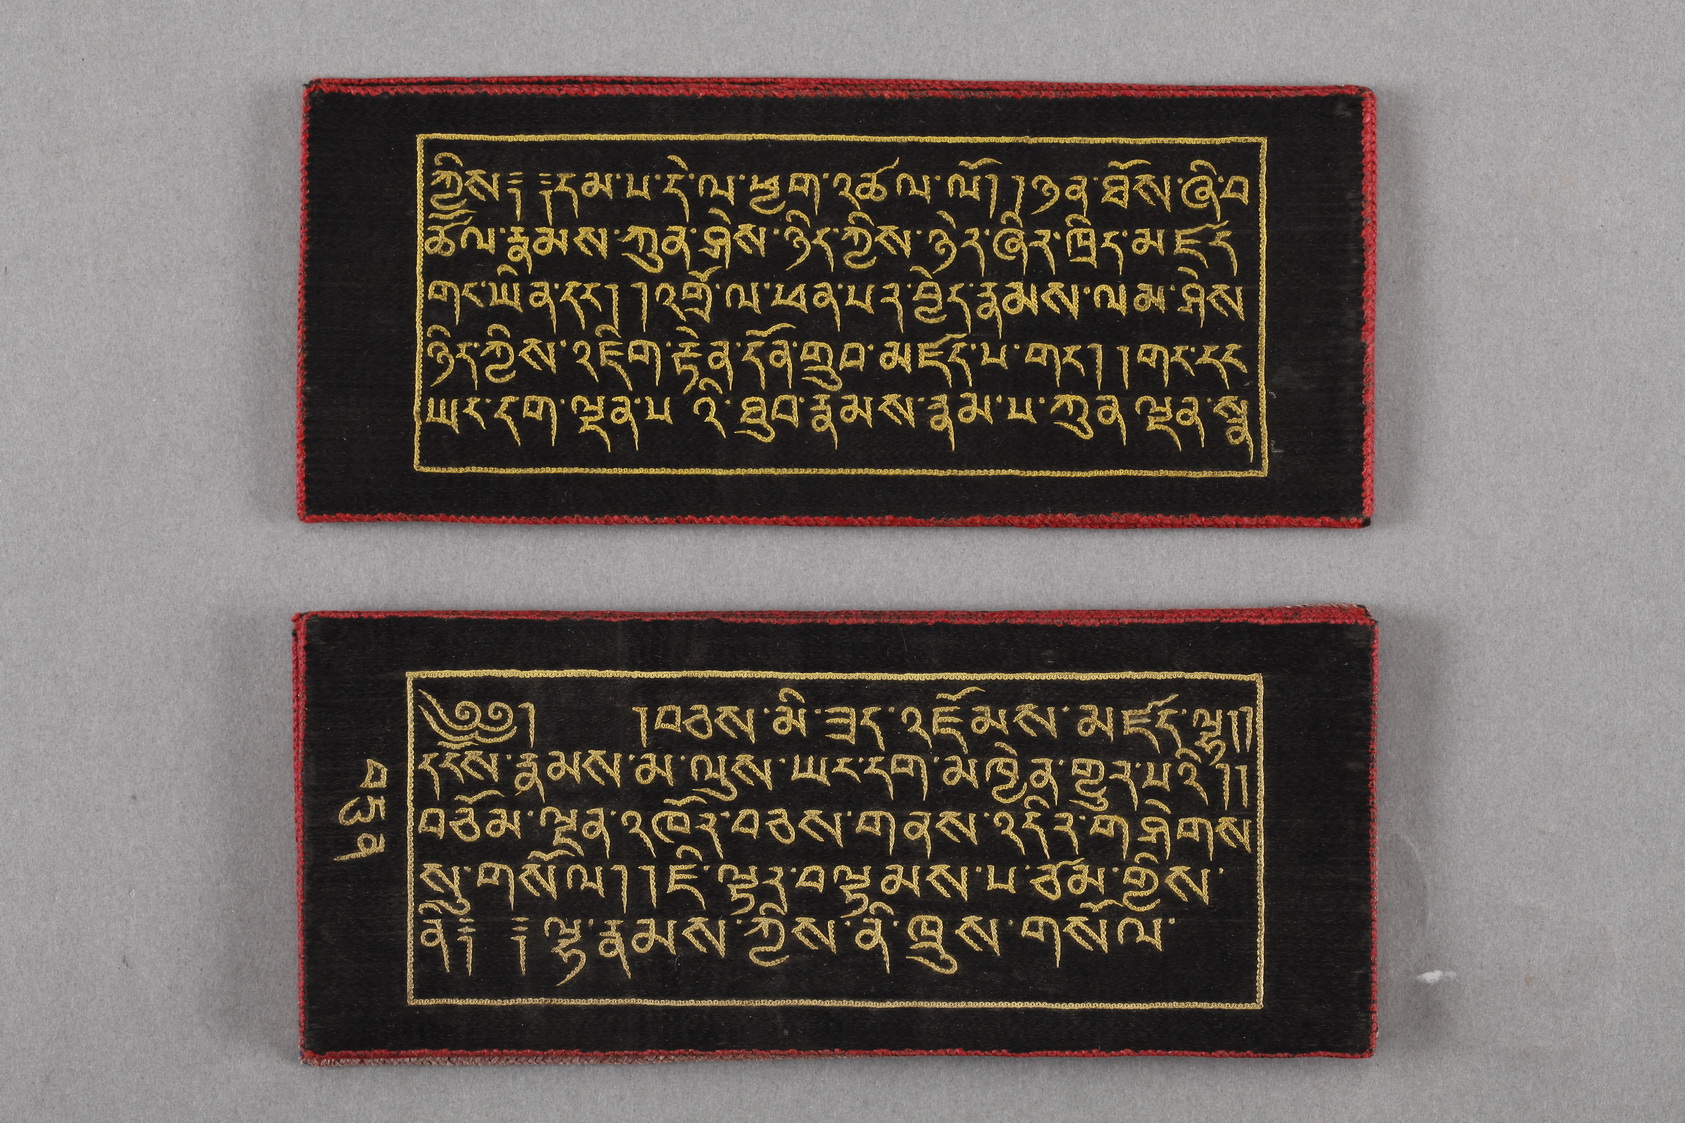 ཀྱིས༔ ༔དམ་པ་དེ་ལ་ཕྱག་འཚལ་ལོ། །ཉན་ཐོས་ཞི་བ
ཚོལ་རྣམས་ཀུན་ཤེས་ཉིད་ཀྱིས་ཉེར་ཞིར་ཁྲིད་མཛད
གང་ཡིན་དང་། །འགྲོ་ལ་ཕན་པར་བྱེད་རྣམས་ལམ་ཤེས
ཉིད་ཀྱིས་འཇིག་རྟེན་དོན་གྲུབ་མཛད་པ་གང་། །གང་དང
ཡང་དག་ལྡན་པའི་ཐུབ་རྣམས་རྣམ་པ་ཀུན་ལྡན་སྣ
༄༅། །བཅས་མི་ཟད་འཇོམས་མཛད་ལྷ།།
དངོས་རྣམས་མ་ལུས་ཡང་དག་མཁྱེན་གྱུར་པའི།།
བཅོམ་ལྡན་འཁོར་བཅས་གནས་འདིར་གཤེགས
སུ་གསོལ། །ཇི་ལྟར་བལྟམས་པ་ཙམ་གྱིས་
ནི༔ ༔ལྷ་རྣམས་ཀྱིས་ནི་ཁྲུས་གསོལ་